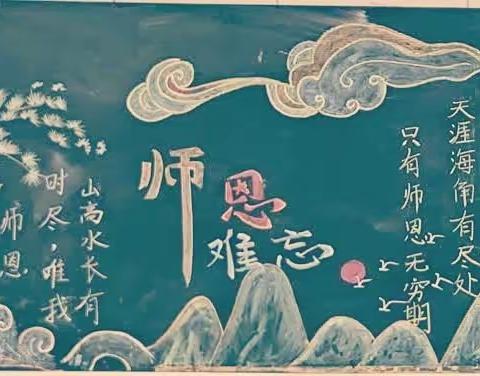 天涯海角有尽处
只有师恩无穷期
师恩难忘
山高水长有
时尽，唯我
师恩